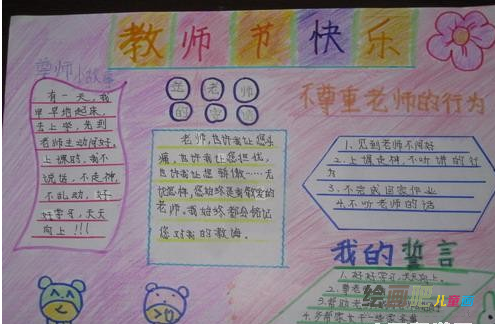 教师节快乐
尊师小故事
有一天，我
早早地起床，
去上学，先到
老师主动问好，
上课时，我不
说话，不走神，
不乱动，好
好学习，天天
向上！！！
给老师
的密语
老师，也许我让您头
痛，也许我让您担忧，
也许我让您骄傲……无
论怎样，您始终是我敬爱的
老师。我始终都会铭记
您对我的教诲。
不尊重老师的行为
1.见到老师不问好
2.上课走神，不听讲的行
为
3.不完成回家作业
4.不听老师的话
我的誓言
1.好好学习，天天向上。
2.尊老
3.帮助老
绘画吧 儿童画